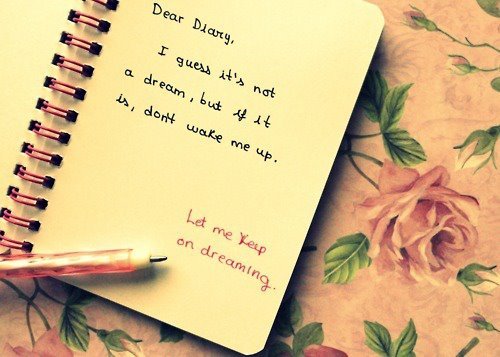 Dear Diary,
I guess it's not
a dream, but if it
is, dont wake me up.
Let me keep
on dreaming.